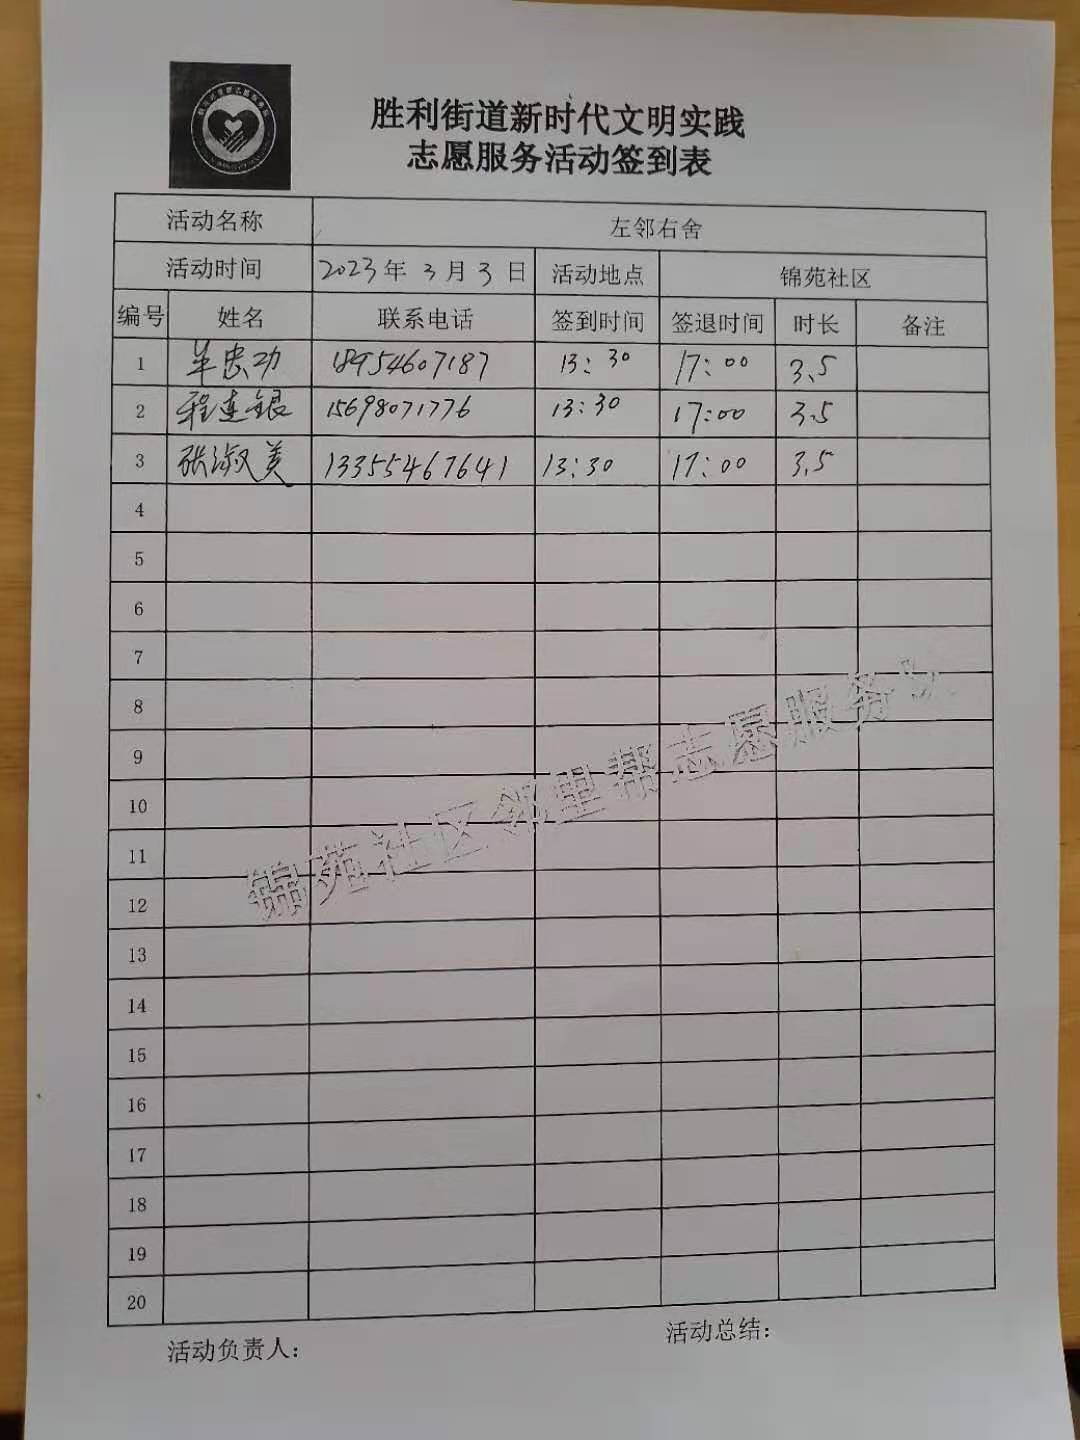 胜利街道新时代文明实践
志愿服务活动签到表
活动名称 左邻右舍
活动时间 2023年 3月3日 活动地点 锦苑社区
编号 姓名 联系电话 签到时间 签退时间 时长 备注
1 羊忠功 18954607187 13:30 17:00 3.5
2 程连银 15698071776 13:30 17:00 3.5
3 张淑美 13355467641 13:30 17:00 3.5
4
5
6
7
8
9
10
11
12
13
14
15
16
17
18
19
20
锦苑社区邻里帮志愿服务
活动负责人：
活动总结：